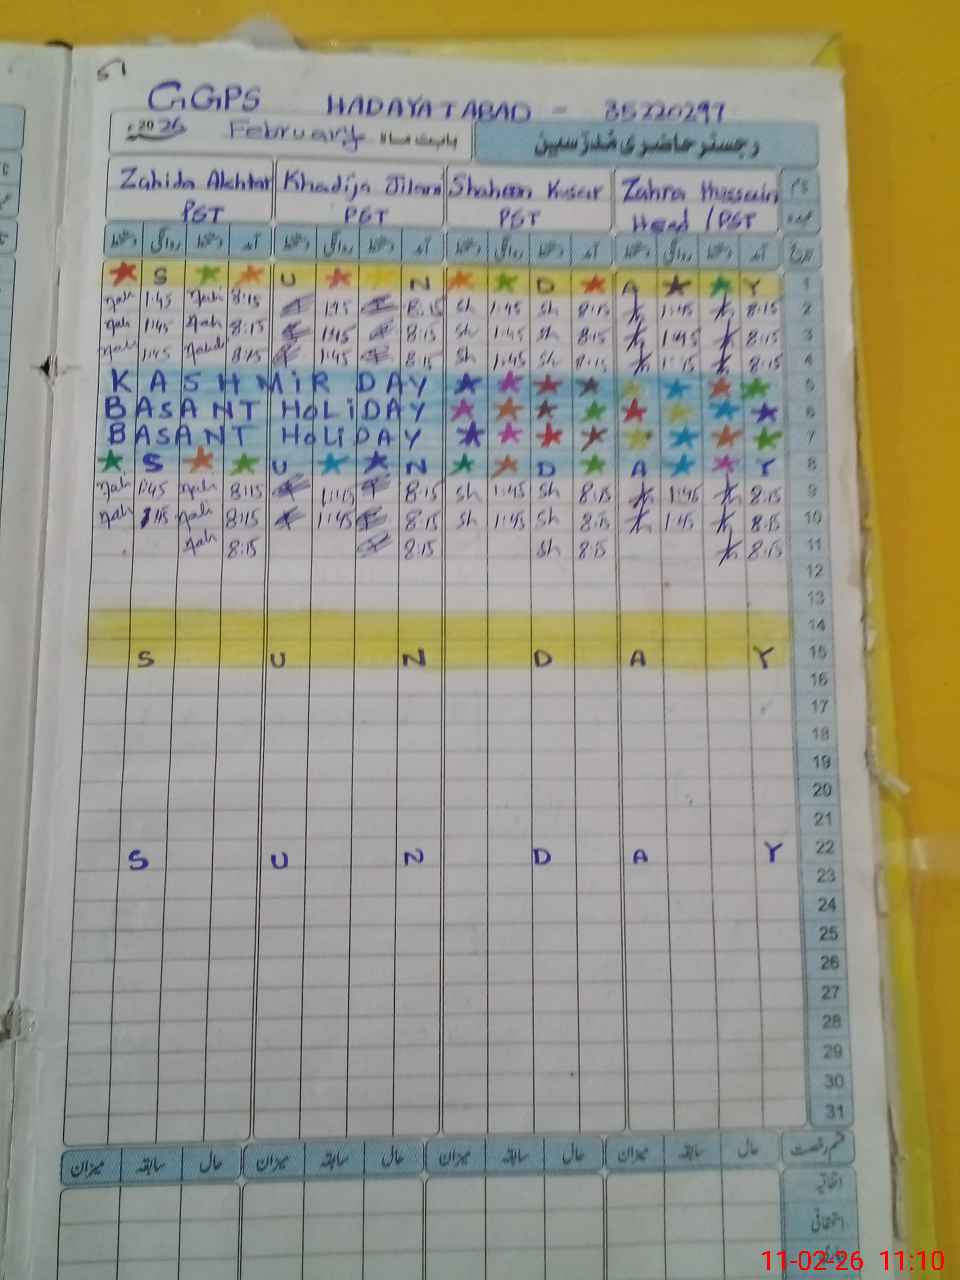 51
GGPS HADAYATABAD - 35220297
رجسٹر حاضری مُدرّسین بابت ماہ February 2026
نام Zahra Hussain Shaheen Kusar Khadija Jilani Zahida Akhtar
عہدہ Head / PST PST PST PST
تاریخ آمد دستخط روانگی دستخط آمد دستخط روانگی دستخط آمد دستخط روانگی دستخط آمد دستخط روانگی دستخط
S U N D A Y 1
1:45 8:15 8:15 sh 1:45 sh 8:15 1:45 8:15 2
1:45 8:15 1:45 8:15 sh 1:45 sh 8:15 1:45 8:15 3
1:45 8:15 1:45 8:15 sh 1:45 sh 8:15 8:15 4
KASHMIR DAY 5
BASANT HOLIDAY 6
BASANT HOLIDAY 7
S U N D A Y 8
1:45 8:15 1:45 8:15 sh 1:45 sh 8:15 1:45 8:15 9
1:45 8:15 1:45 8:15 sh 1:45 sh 8:15 1:45 8:15 10
8:15 8:15 sh 8:15 8:15 11
12
13
14
S U N D A Y 15
16
17
18
19
20
21
S U N D A Y 22
23
24
25
26
27
28
29
30
31
قسم رخصت حال سابقہ میزان حال سابقہ میزان حال سابقہ میزان حال سابقہ میزان
اتفاقیہ
استحقاقی
11-02-26 11:10